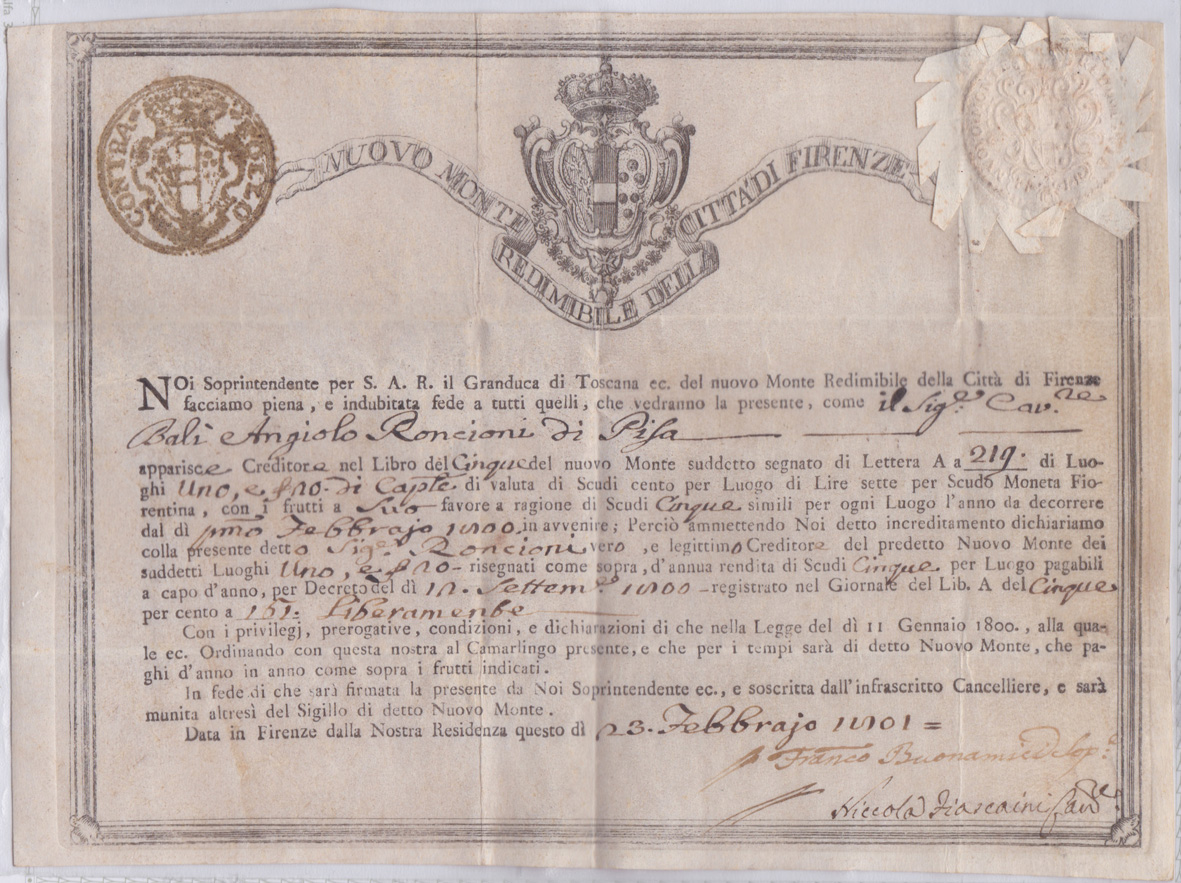 CONTRA=SIGILLO
NUOVO MONTE REDIMIBILE DELLA CITTÀ DI FIRENZE
NOi Soprintendente per S. A. R. il Granduca di Toscana ec. del nuovo Monte Redimibile della Città di Firenze
facciamo piena, e indubitata fede a tutti quelli, che vedranno la presente, come il Sig.re Cav.re
Balì Angiolo Roncioni di Pisa
apparisce Creditore nel Libro del Cinque del nuovo Monte suddetto segnato di Lettera A a 219. di Luo-
ghi Uno, e 20. di Caple di valuta di Scudi cento per Luogo di Lire sette per Scudo Moneta Fio-
rentina, con i frutti a Suo favore a ragione di Scudi Cinque simili per ogni Luogo l'anno da decorrere
dal dì pmo Febbrajo 1800. in avvenire; Perciò ammettendo Noi detto increditamento dichiariamo
colla presente detto Sig.re Roncioni vero, e legittimo Creditore del predetto Nuovo Monte dei
suddetti Luoghi Uno, e 20- risegnati come sopra, d'annua rendita di Scudi Cinque per Luogo pagabili
a capo d'anno, per Decreto del dì 12. Settem.e 1800 - registrato nel Giornale del Lib. A del Cinque
per cento a 151: Liberamente
Con i privilegj, prerogative, condizioni, e dichiarazioni di che nella Legge del dì 11 Gennaio 1800., alla qua-
le ec. Ordinando con questa nostra al Camarlingo presente, e che per i tempi sarà di detto Nuovo Monte, che pa-
ghi d'anno in anno come sopra i frutti indicati.
In fede di che sarà firmata la presente da Noi Soprintendente ec., e soscritta dall'infrascritto Cancelliere, e sarà
munita altresì del Sigillo di detto Nuovo Monte.
Data in Firenze dalla Nostra Residenza questo dì 23. Febbrajo 1801 =
Franco Buonamici Sop.e
Niccola